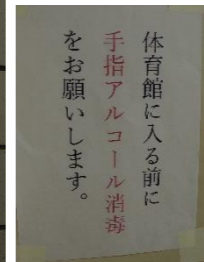 体育館に入る前に
手指アルコール消毒
をお願いします。